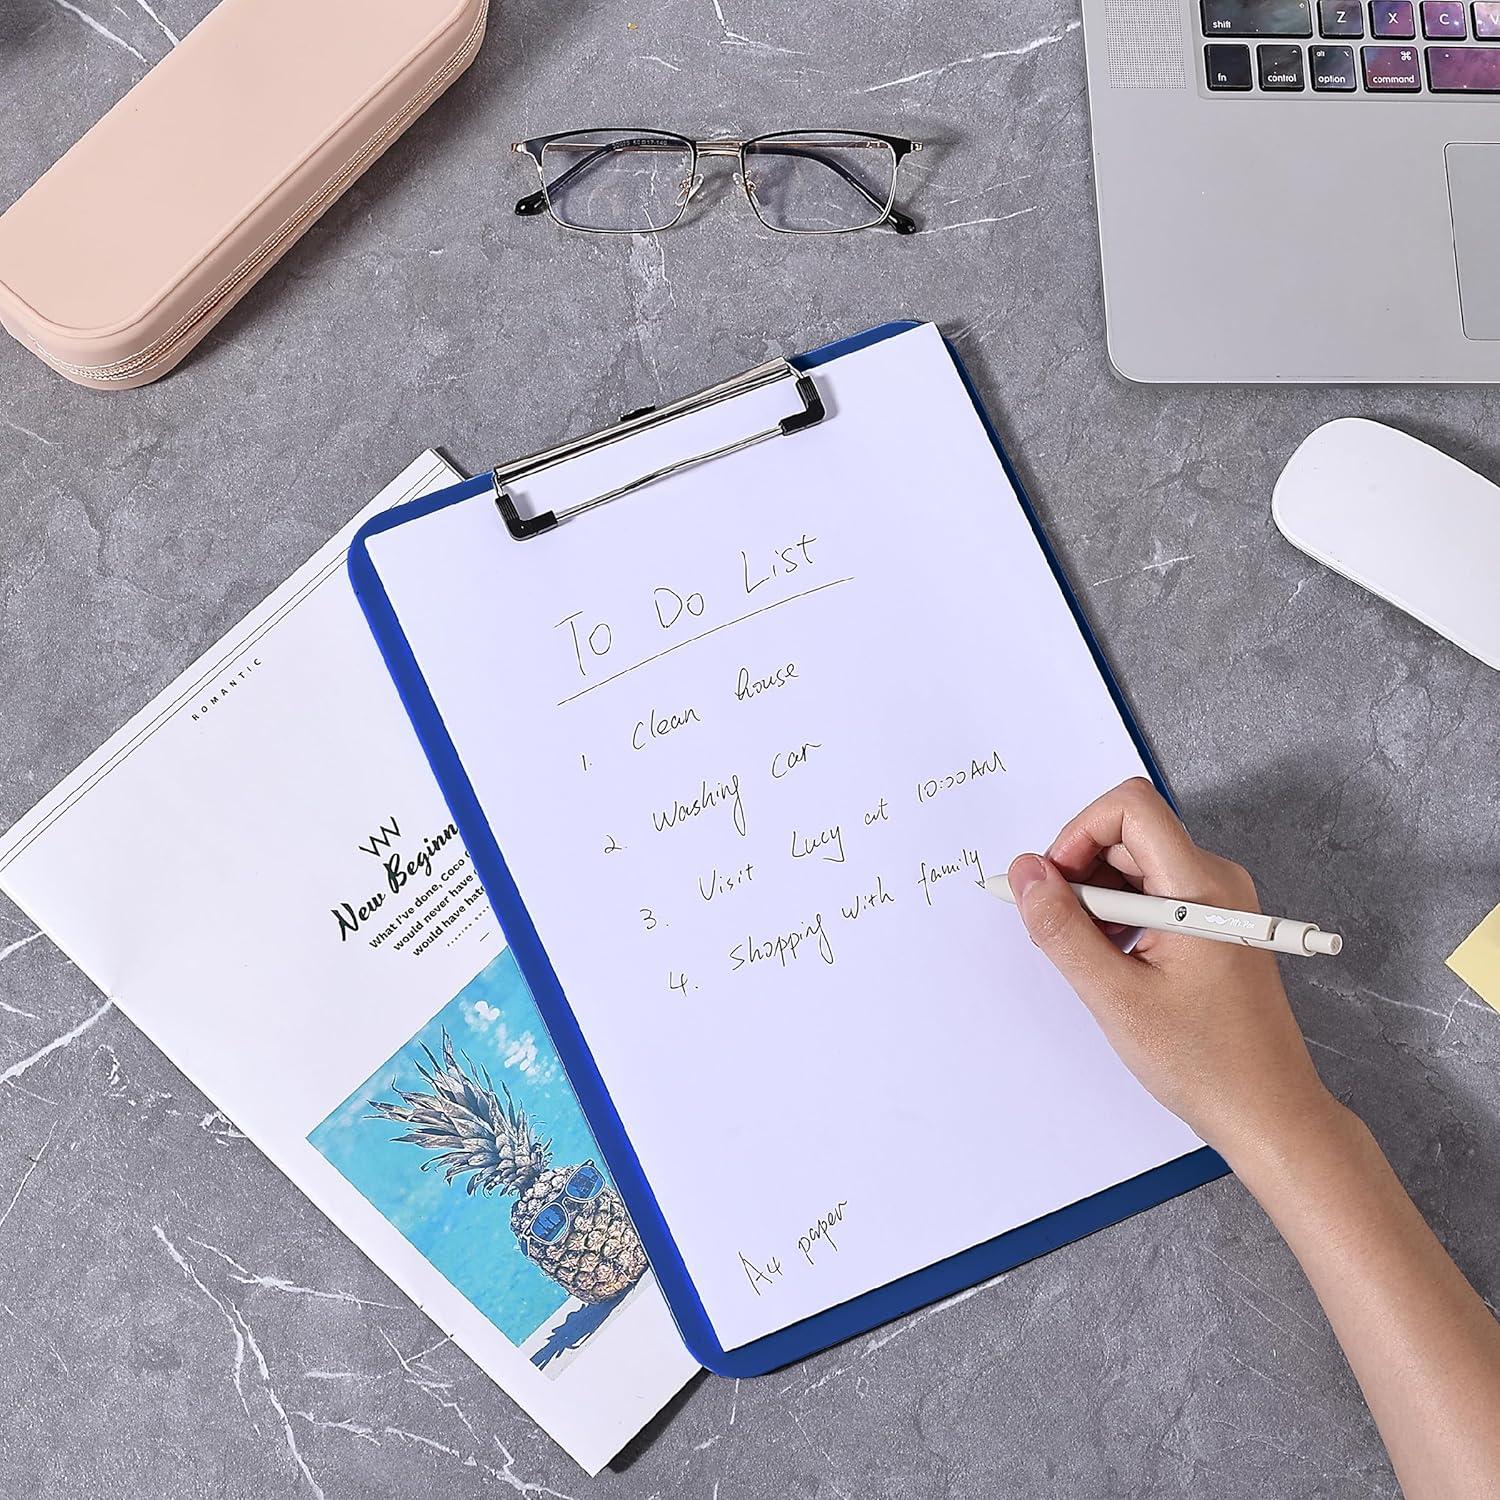 shift
Z
X
C
V
fn
control
alt
option
⌘
command
To Do List
1. Clean house
2. Washing car
3. Visit Lucy at 10:00AM
4. Shopping with family
A4 paper
ROMANTIC
New Beginn
What I've done, Coco
would never have
would have